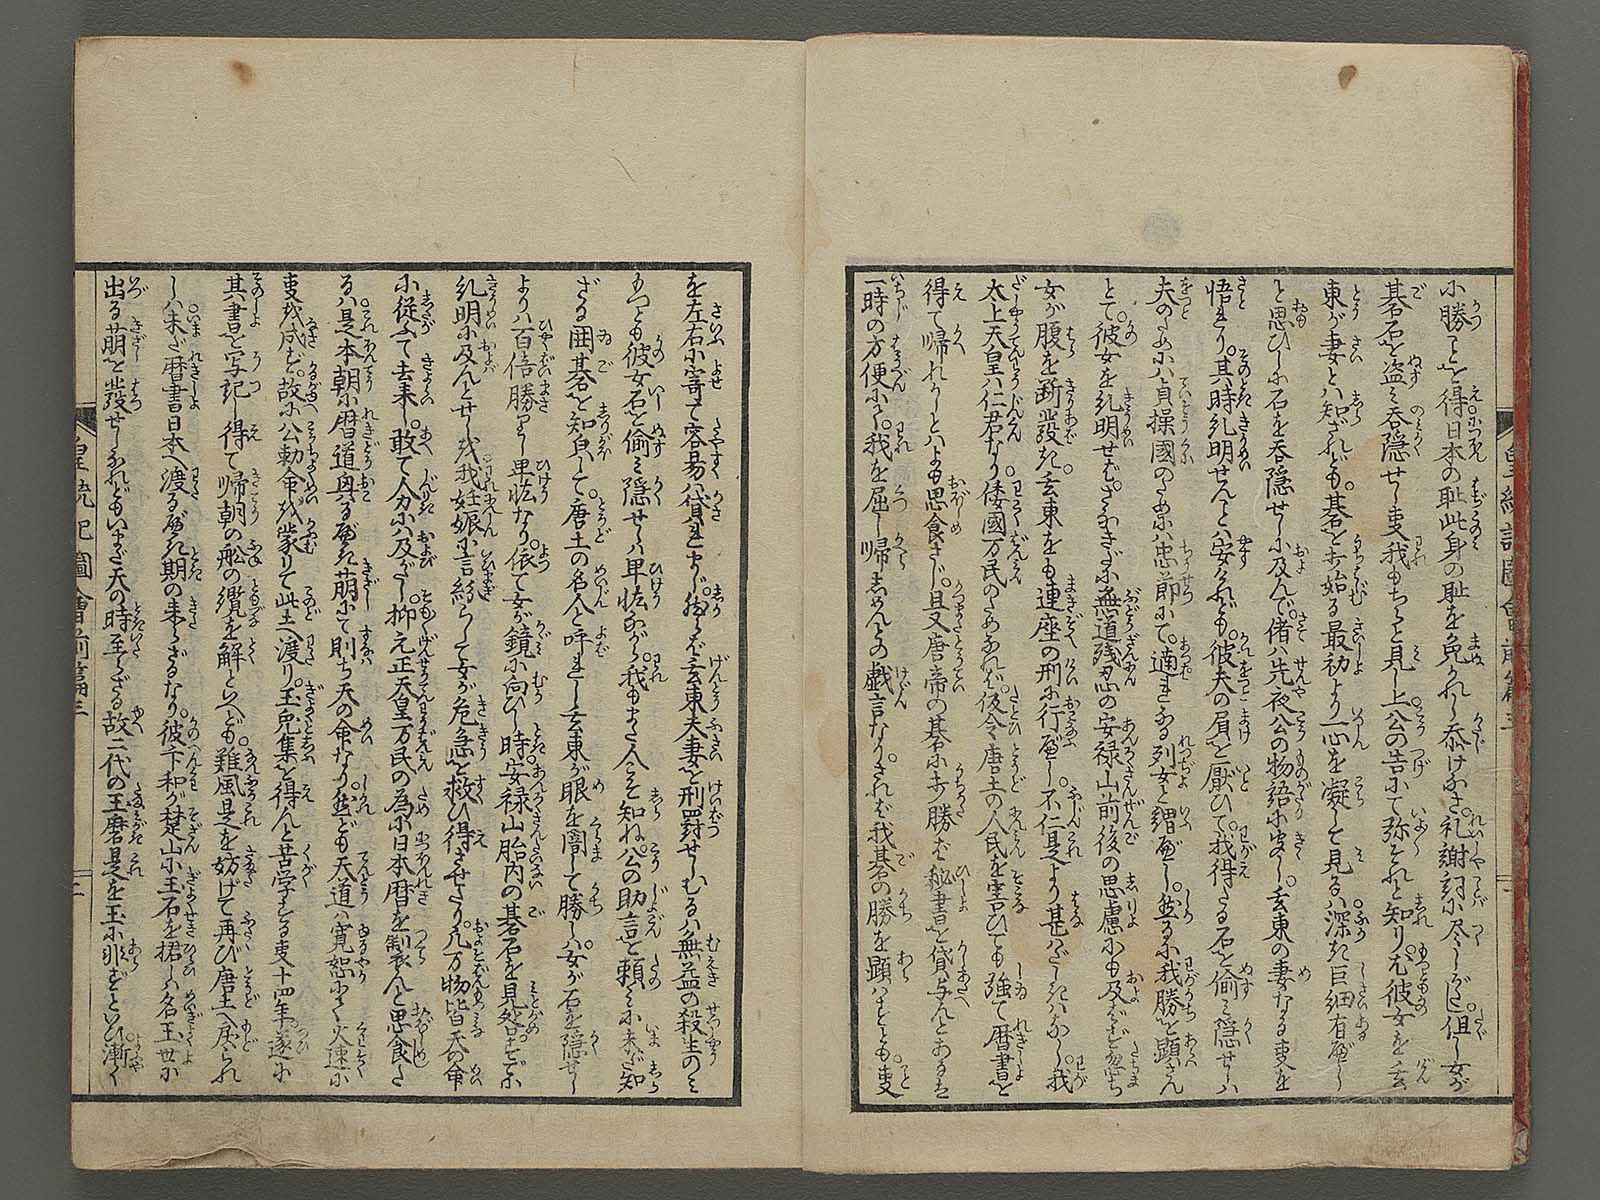 小勝ことを得日本の恥此身の恥を免かれし忝けなさ。礼謝詞に尽しがたし。但し女が
碁石を盗ミ呑隠せし事我もちらと見し上公の告にて弥それと知りぬ。彼女を玄
東が妻とハ知ざれども。碁を打始る最初より一心を凝して見るハ深き巨細有べし
と思ひしに石を呑隠せしに及んで。偖ハ先夜公の物語に聞し。玄東の妻なる事を
悟りたり。其時糺明せんとハ安けれども。彼夫の眉を厭ひて我得たる石を偷ミ隠せしハ
夫のためにハ貞操國のためにハ忠節にて。遖れなる列女と謂べし。然るに我勝を顕さん
とて。彼女を糺明せば。さしもぎに無道残忍の安禄山前後の思慮にも及ばず忽ち
女が腹を断發き。玄東をも連座の刑に行べし。不仁是より甚はだしきハなし。我
太上天皇ハ仁君なり。倭國万民のためなれば。後令唐土の人民を害ひても強て暦書を
得て帰れかしとハよも思食さじ。且又唐帝の碁に打勝ば秘書を貸与んとあるも
一時の方便にて。我を屈し帰らしめんとの戯言なり。されば我碁の勝を顕ハすとも。事
を左右に寄て容易ハ貸るまじ。然らば玄東夫妻を刑罸せしむるハ無益の殺生のミ
もつとも彼女石を偷ミ隠せしハ卑怯ながら。我もまた人こそ知ね。公の助言を頼ミに未だ知
ざる囲碁を知㒵して。唐土の名人と呼れし玄東が眼を闇まして勝しハ。女が石を隠せし
よりハ百倍勝りし卑怯なり。依て女が鏡に向ひし時。安禄山胎内の碁石を見咎めすでに
糺明に及んとせしを我妊娠と言紛らして女が危急を救ひ得させたり。凡万物皆天の命
に従ふて去来し。敢て人力にハ及がたし。抑元正天皇万民の為に日本暦を製んと思食た
るハ是本朝に暦道興るべき萌にて則ち天の命なり。然ども天道ハ寛恕にして火速に
事を成ず。故に公勅命を蒙りて此土へ渡り。玉兎集を得んと苦学する事十四年。遂に
其書を写記し得て帰朝の舩の纜を解といへども。難風是を妨げて再び唐土へ戻られ
しハ未だ暦書日本へ渡るべき期の来らざるなり。彼卞和が楚山に玉石を捃しハ名玉世に
出る萌を發せしなれどもいまだ天の時至らざる故二代の王磨是を玉に非ずといひ漸く
皇統記圖會前篇三
二